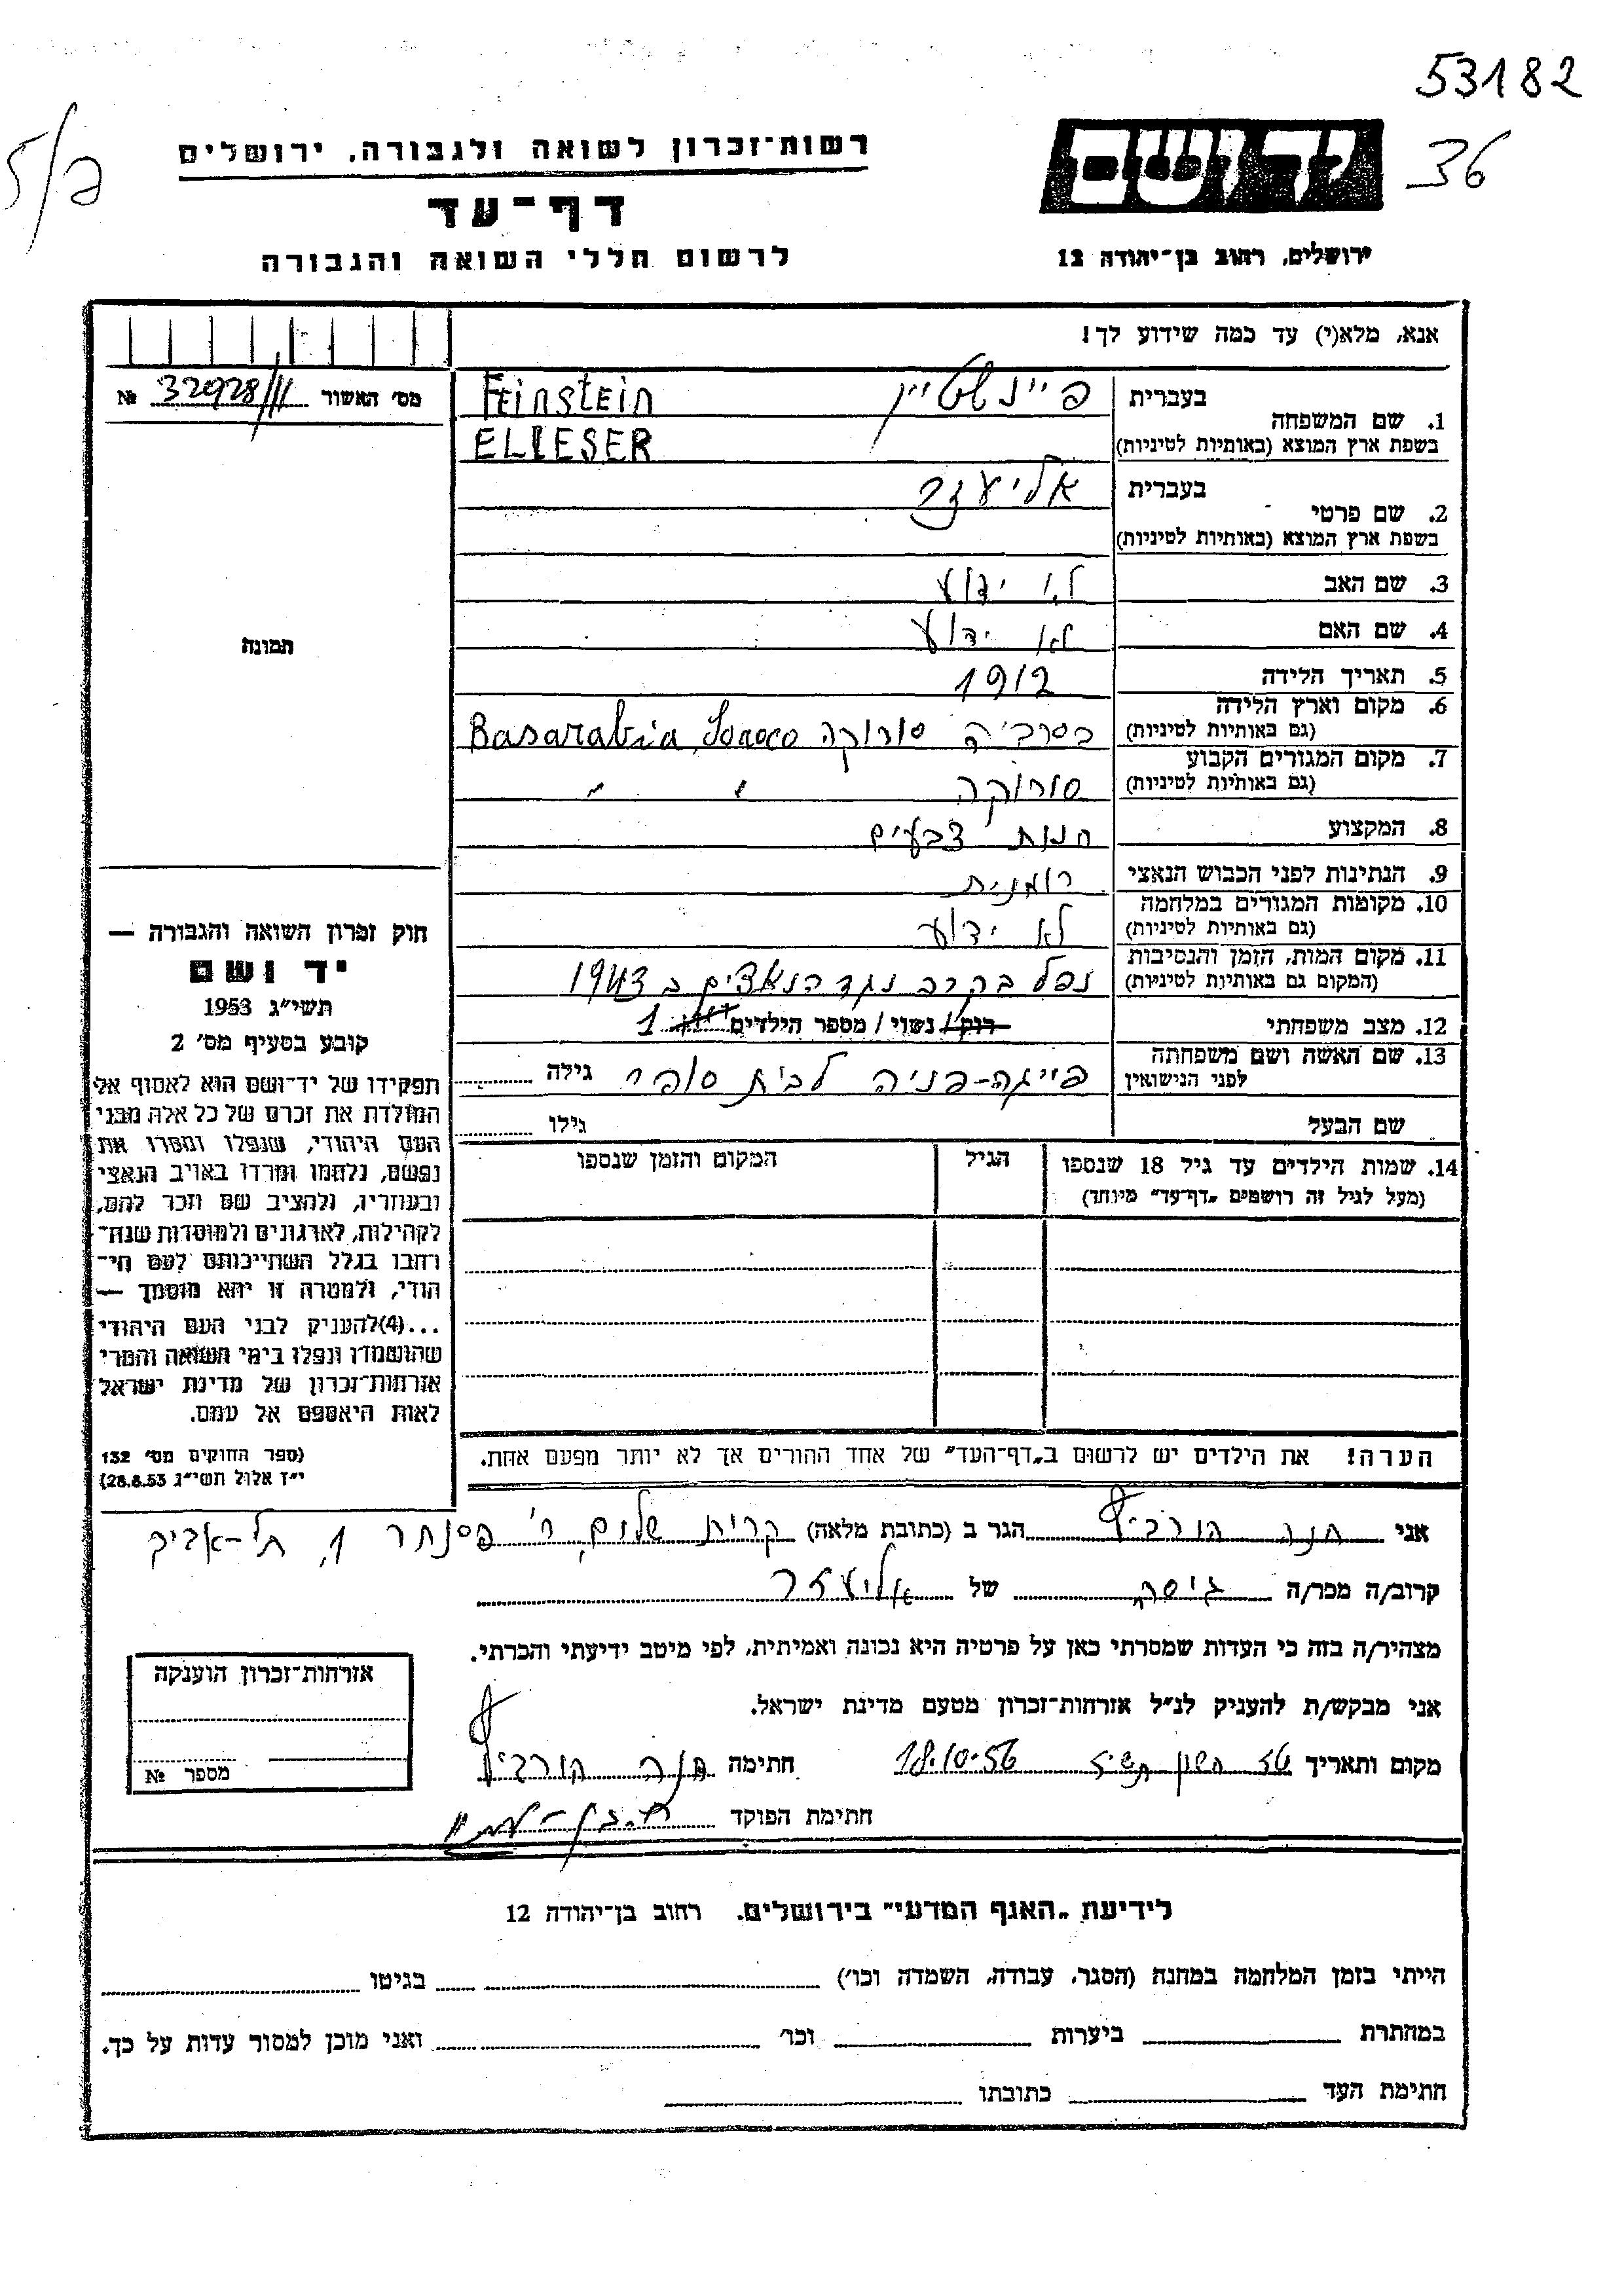 53182
36
יד ושם
רשות־זכרון לשואה ולגבורה, ירושלים
דף־עד
לרשום חללי השואה והגבורה
ירושלים, רחוב בן־יהודה 12
אנא, מלא(י) עד כמה שידוע לך!
מס׳ האשור 32928/11 №
תמונה
1. שם המשפחה
בעברית פיינשטיין Feinstein
בשפת ארץ המוצא (באותיות לטיניות) ELIESER
2. שם פרטי
בעברית אליעזר
בשפת ארץ המוצא (באותיות לטיניות)
3. שם האב לא ידוע
4. שם האם לא ידוע
5. תאריך הלידה 1912
6. מקום וארץ הלידה בסרביה סורוקה Basarabia
(גם באותיות לטיניות)
7. מקום המגורים הקבוע סורוקה " "
(גם באותיות לטיניות)
8. המקצוע חנות צבעים
9. הנתינות לפני הכבוש הנאצי רומנית
10. מקומות המגורים במלחמה לא ידוע
(גם באותיות לטיניות)
11. מקום המות, הזמן והנסיבות נפל בקרב נגד הנאצים ב 1943
(המקום גם באותיות לטיניות)
12. מצב משפחתי רוק/ נשוי / מספר הילדים 1
13. שם האשה ושם משפחתה פייגה-פניה לבית סופר גילה
לפני הנישואין
שם הבעל גילו
14. שמות הילדים עד גיל 18 שנספו הגיל המקום והזמן שנספו
(מעל לגיל זה רושמים „דף־עד” מיוחד)
הערה! את הילדים יש לרשום ב„דף־העד” של אחד ההורים אך לא יותר מפעם אחת.
חוק זכרון השואה והגבורה —
יד ושם
תשי״ג 1953
קובע בסעיף מס׳ 2
תפקידו של יד־ושם הוא לאסוף אל
המולדת את זכרם של כל אלה מבני
העם היהודי, שנפלו ומסרו את
נפשם, נלחמו ומרדו באויב הנאצי
ובעוזריו, ולהציב שם וזכר להם,
לקהילות, לארגונים ולמוסדות שנח־
רבו בגלל השתייכותם לעם הי־
הודי, ולמטרה זו יהא מוסמך —
...(4)להעניק לבני העם היהודי
שהושמדו ונפלו בימי השואה והמרי
אזרחות־זכרון של מדינת ישראל
לאות היאספם אל עמם.
(ספר החוקים מס׳ 132
י״ז אלול תשי״ג 28.8.53)
אני חנה הורביץ הגר ב (כתובת מלאה) קרית שלום, ר׳ פסנתר 1, תל-אביב
קרוב/ה מכר/ה גיסה של אליעזר
מצהיר/ה בזה כי העדות שמסרתי כאן על פרטיה היא נכונה ואמיתית, לפי מיטב ידיעתי והכרתי.
אני מבקש/ת להעניק לנ״ל אזרחות־זכרון מטעם מדינת ישראל.
מקום ותאריך חשון 18.10.56 חתימה חנה הורביץ
חתימת הפוקד
אזרחות־זכרון הוענקה
מספר №
לידיעת „האגף המדעי” בירושלים. רחוב בן־יהודה 12
הייתי בזמן המלחמה במחנה (הסגר, עבודה, השמדה וכו׳) בגיטו
במחתרת ביערות וכו׳ ואני מוכן למסור עדות על כך.
חתימת העד כתובתו